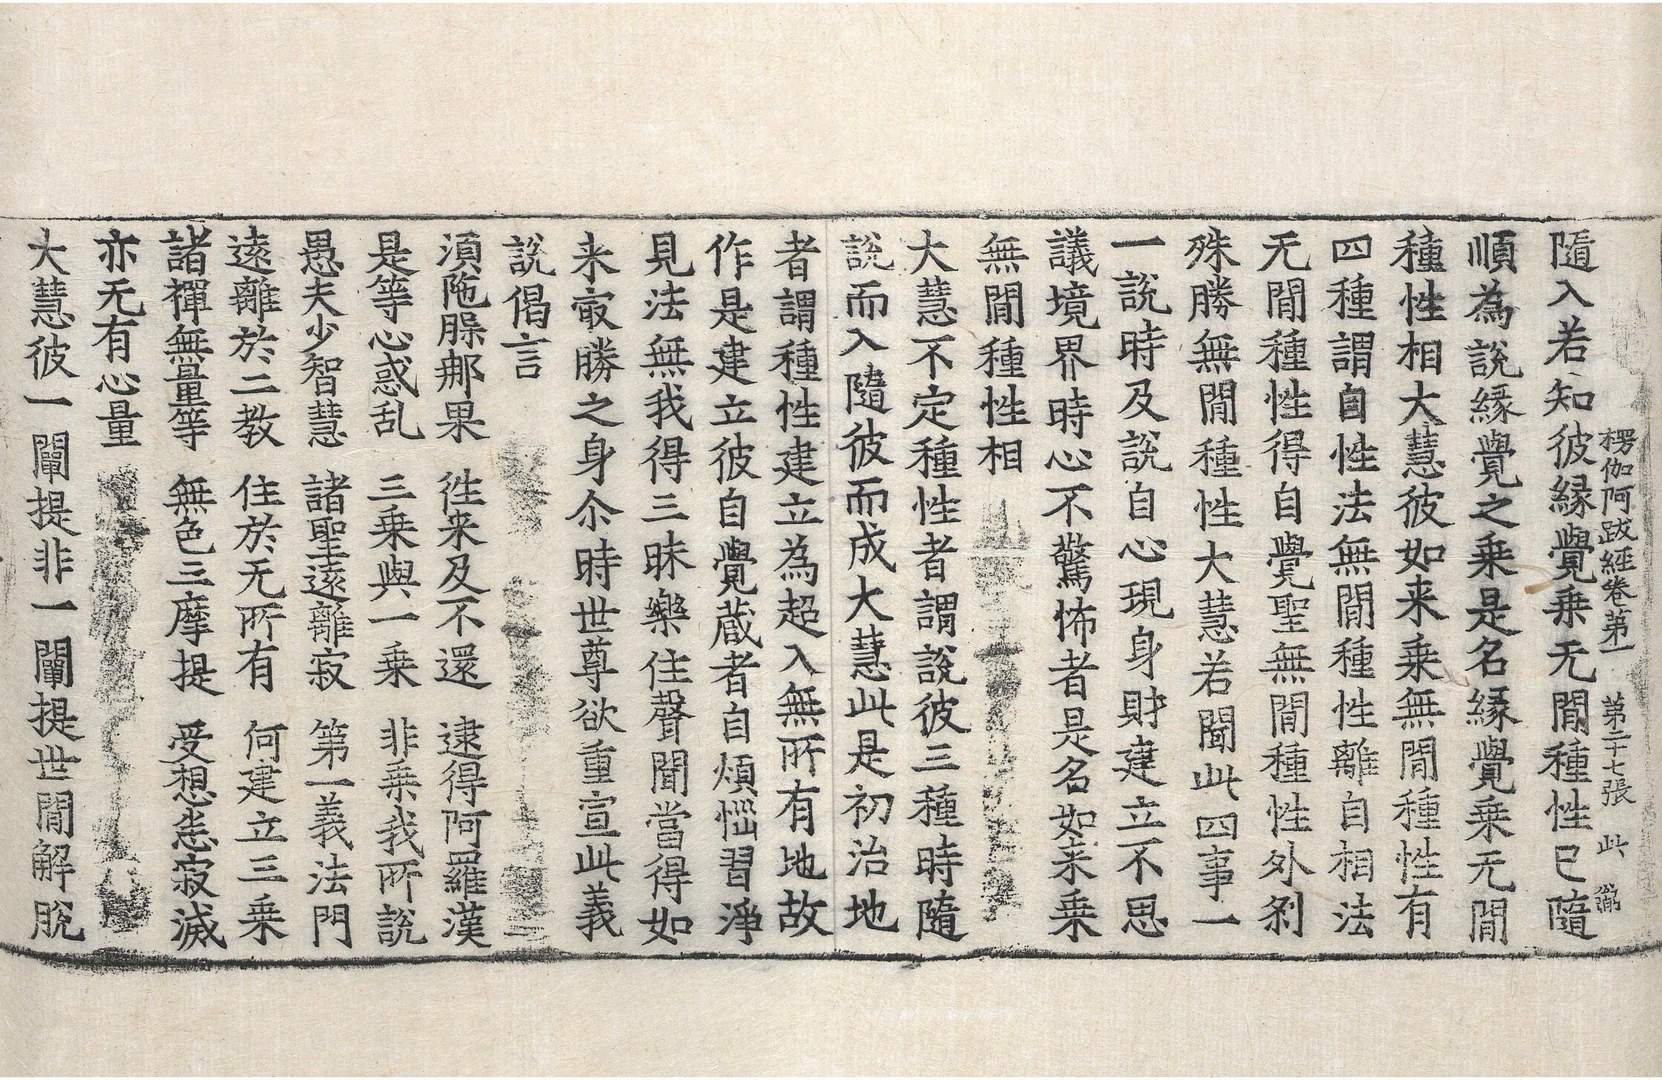 楞伽阿跋經卷第一　第二十七張　此
隨入若知彼緣覺乘无閒種性已隨
順為說緣覺之乘是名緣覺乘无閒
種性相大慧彼如来乘無閒種性有
四種謂自性法無閒種性離自相法
无閒種性得自覺聖無閒種性外剎
殊勝無閒種性大慧若聞此四事一
一說時及說自心現身財建立不思
議境界時心不驚怖者是名如来乘
無閒種性相
大慧不定種性者謂說彼三種時隨
說而入隨彼而成大慧此是初治地
者謂種性建立為超入無所有地故
作是建立彼自覺藏者自煩惱習淨
見法無我得三昧樂住聲聞當得如
来㝡勝之身尒時世尊欲重宣此義
說偈言
須陁腂那果　徃来及不還　逮得阿羅漢
是等心惑乱　三乘與一乘　非乘我所說
愚夫少智慧　諸聖遠離寂　第一義法門
遠離於二教　住於无所有　何建立三乘
諸禪無量等　無色三摩提　受想悉寂滅
亦无有心量
大慧彼一闡提非一闡提世閒解脫